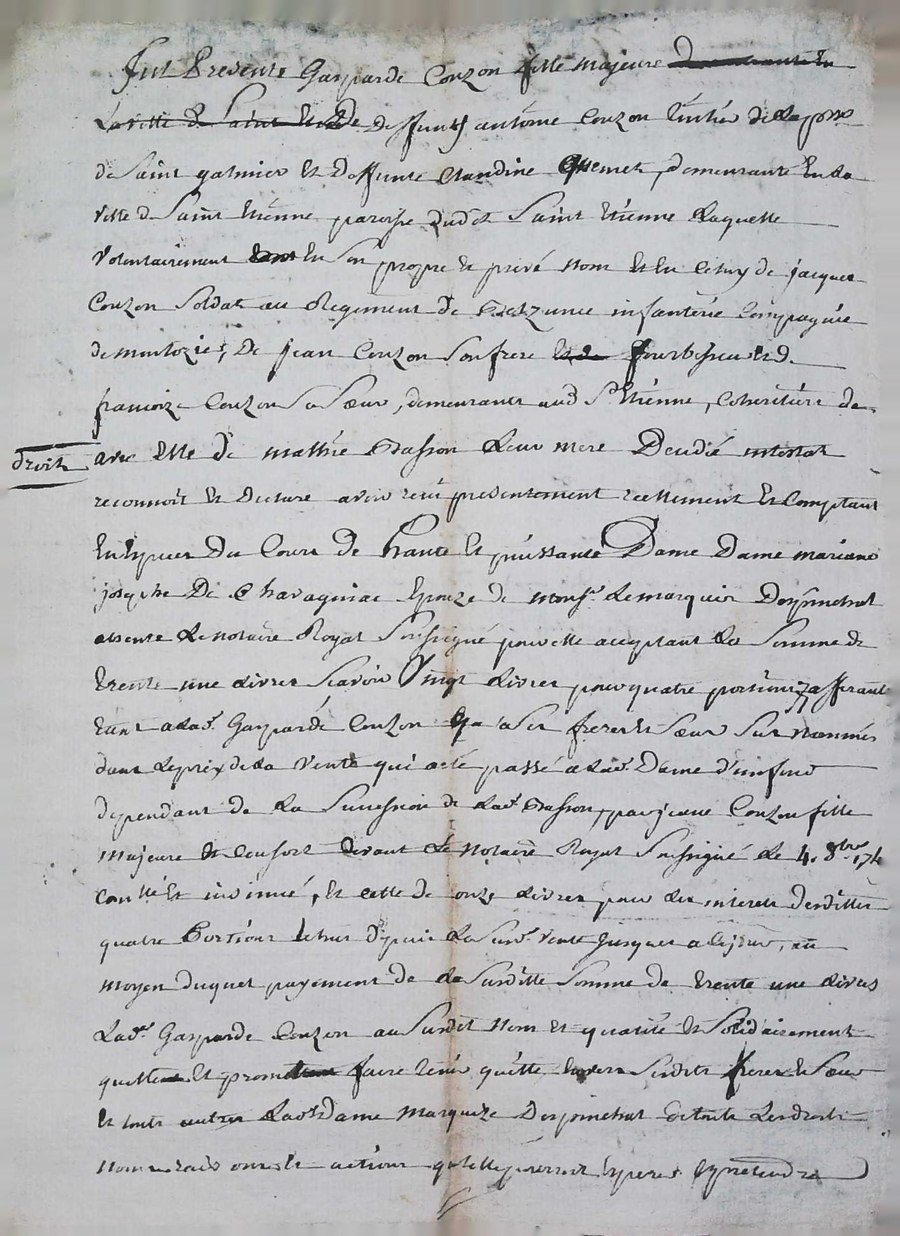 Fut Presente Gasparde Couzon fille Majeure
la ville de Saint de Deffunts antoine Couzon de la
de Saint galmier Et Deffunte Claudine demeurante En la
ville de Saint Etienne paroisse dudit Saint Etienne Laquelle
Volontairement En Son propre Et privé Nom Et En Celuy de jacques
Couzon Soldat au Regiment de infanterie Compagnie
de de jean Couzon Son frere fourbisseur Et de
françoize Couzon Sa Sœur, demeurants aud St Etienne, Coheritiers de
droit
avec Elle de Basson Leur mere Decedée intestat
reconnoit Et Declare avoir reçu presentement reellement Et Comptant
En Especes Du Cours De haute Et puissante Dame Dame mariane
josephe De Chavagniac Epouze de Monsr. Le marquis Despinchal
absente Le Notaire Royal Soussigné pour elle acceptant La Somme de
trente une Livres Scavoir Vingt Livres pour quatre portions afferante
tant a lade. Gasparde Couzon qu'a Ses freres Et Sœur Sus Nommés
dans Le prix de la Vente qui a eté passé a lade. Dame d'un fond
dependant de La Succession de lade. Basson, par jeane Couzon fille
Majeure Et Consort devant Le Notaire Royal Soussigné Le 4. 8bre 174
Controllé Et insinué, Et Celle de onze Livres pour Les interets Desdittes
quatre Portions Echus depuis La Susd. Vente jusques a Ce jour, au
moyen duquel payement de la Susditte Somme de trente une Livres
Lade. Gasparde Couzon au Susdit Nom Et qualité Et Solidairement
quitte Et promet faire tenir quitte Envers Sesdits freres Et Sœur
Et touts autres Lade Dame Marquize Despinchal de touts Les droits
Noms raisons Et actions qu'elle pourroit Esperer Et pretendre